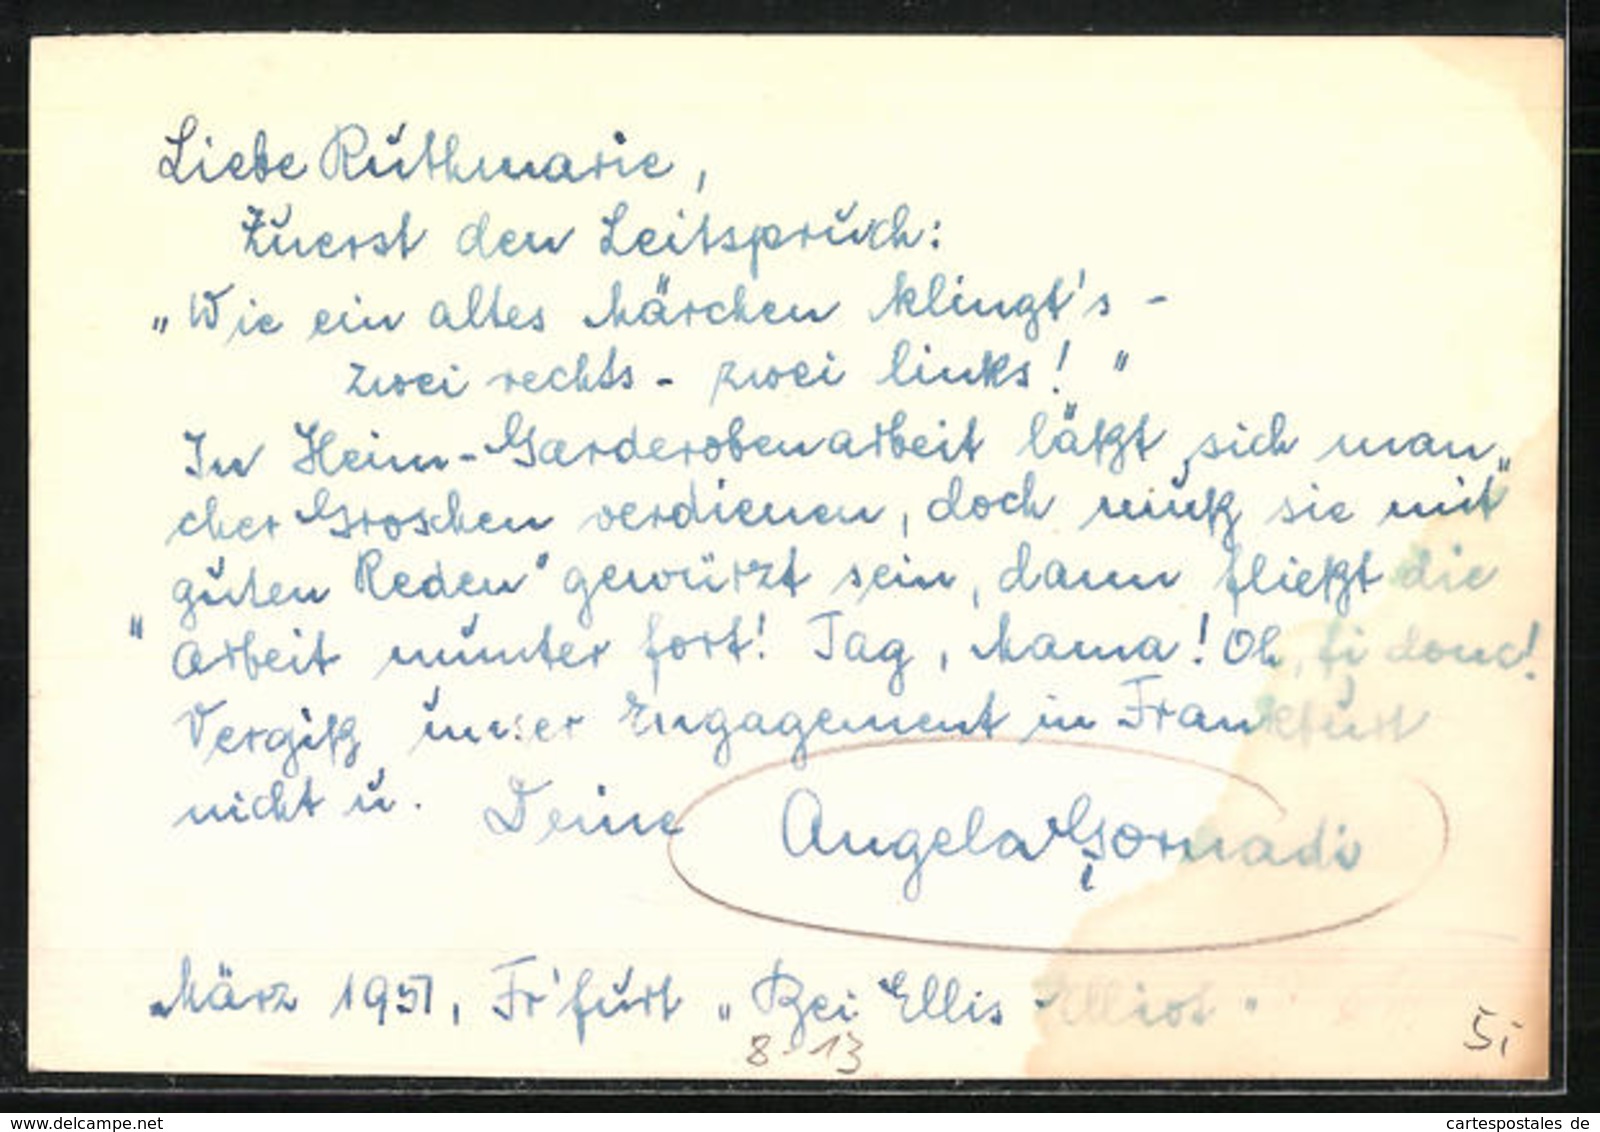 Liebe Ruthmarie,
Zuerst den Leitspruch:
„Wie ein altes Märchen klingt's -
zwei rechts - zwei links!"
In Heim-Garderobenarbeit läßt sich man„
cher Groschen verdienen, doch muß sie „mit
guten Reden" gewürzt sein, dann fließt die
"Arbeit munter fort! Tag, Mama! Oh, fi donc!
Vergiß unser Engagement in Frankfurt
nicht u. Deine Angela Gornadi
März 1951, Fr'furt „Bei Ellis Elliot"
8-13
5i
www.delcampe.net
cartespostales de